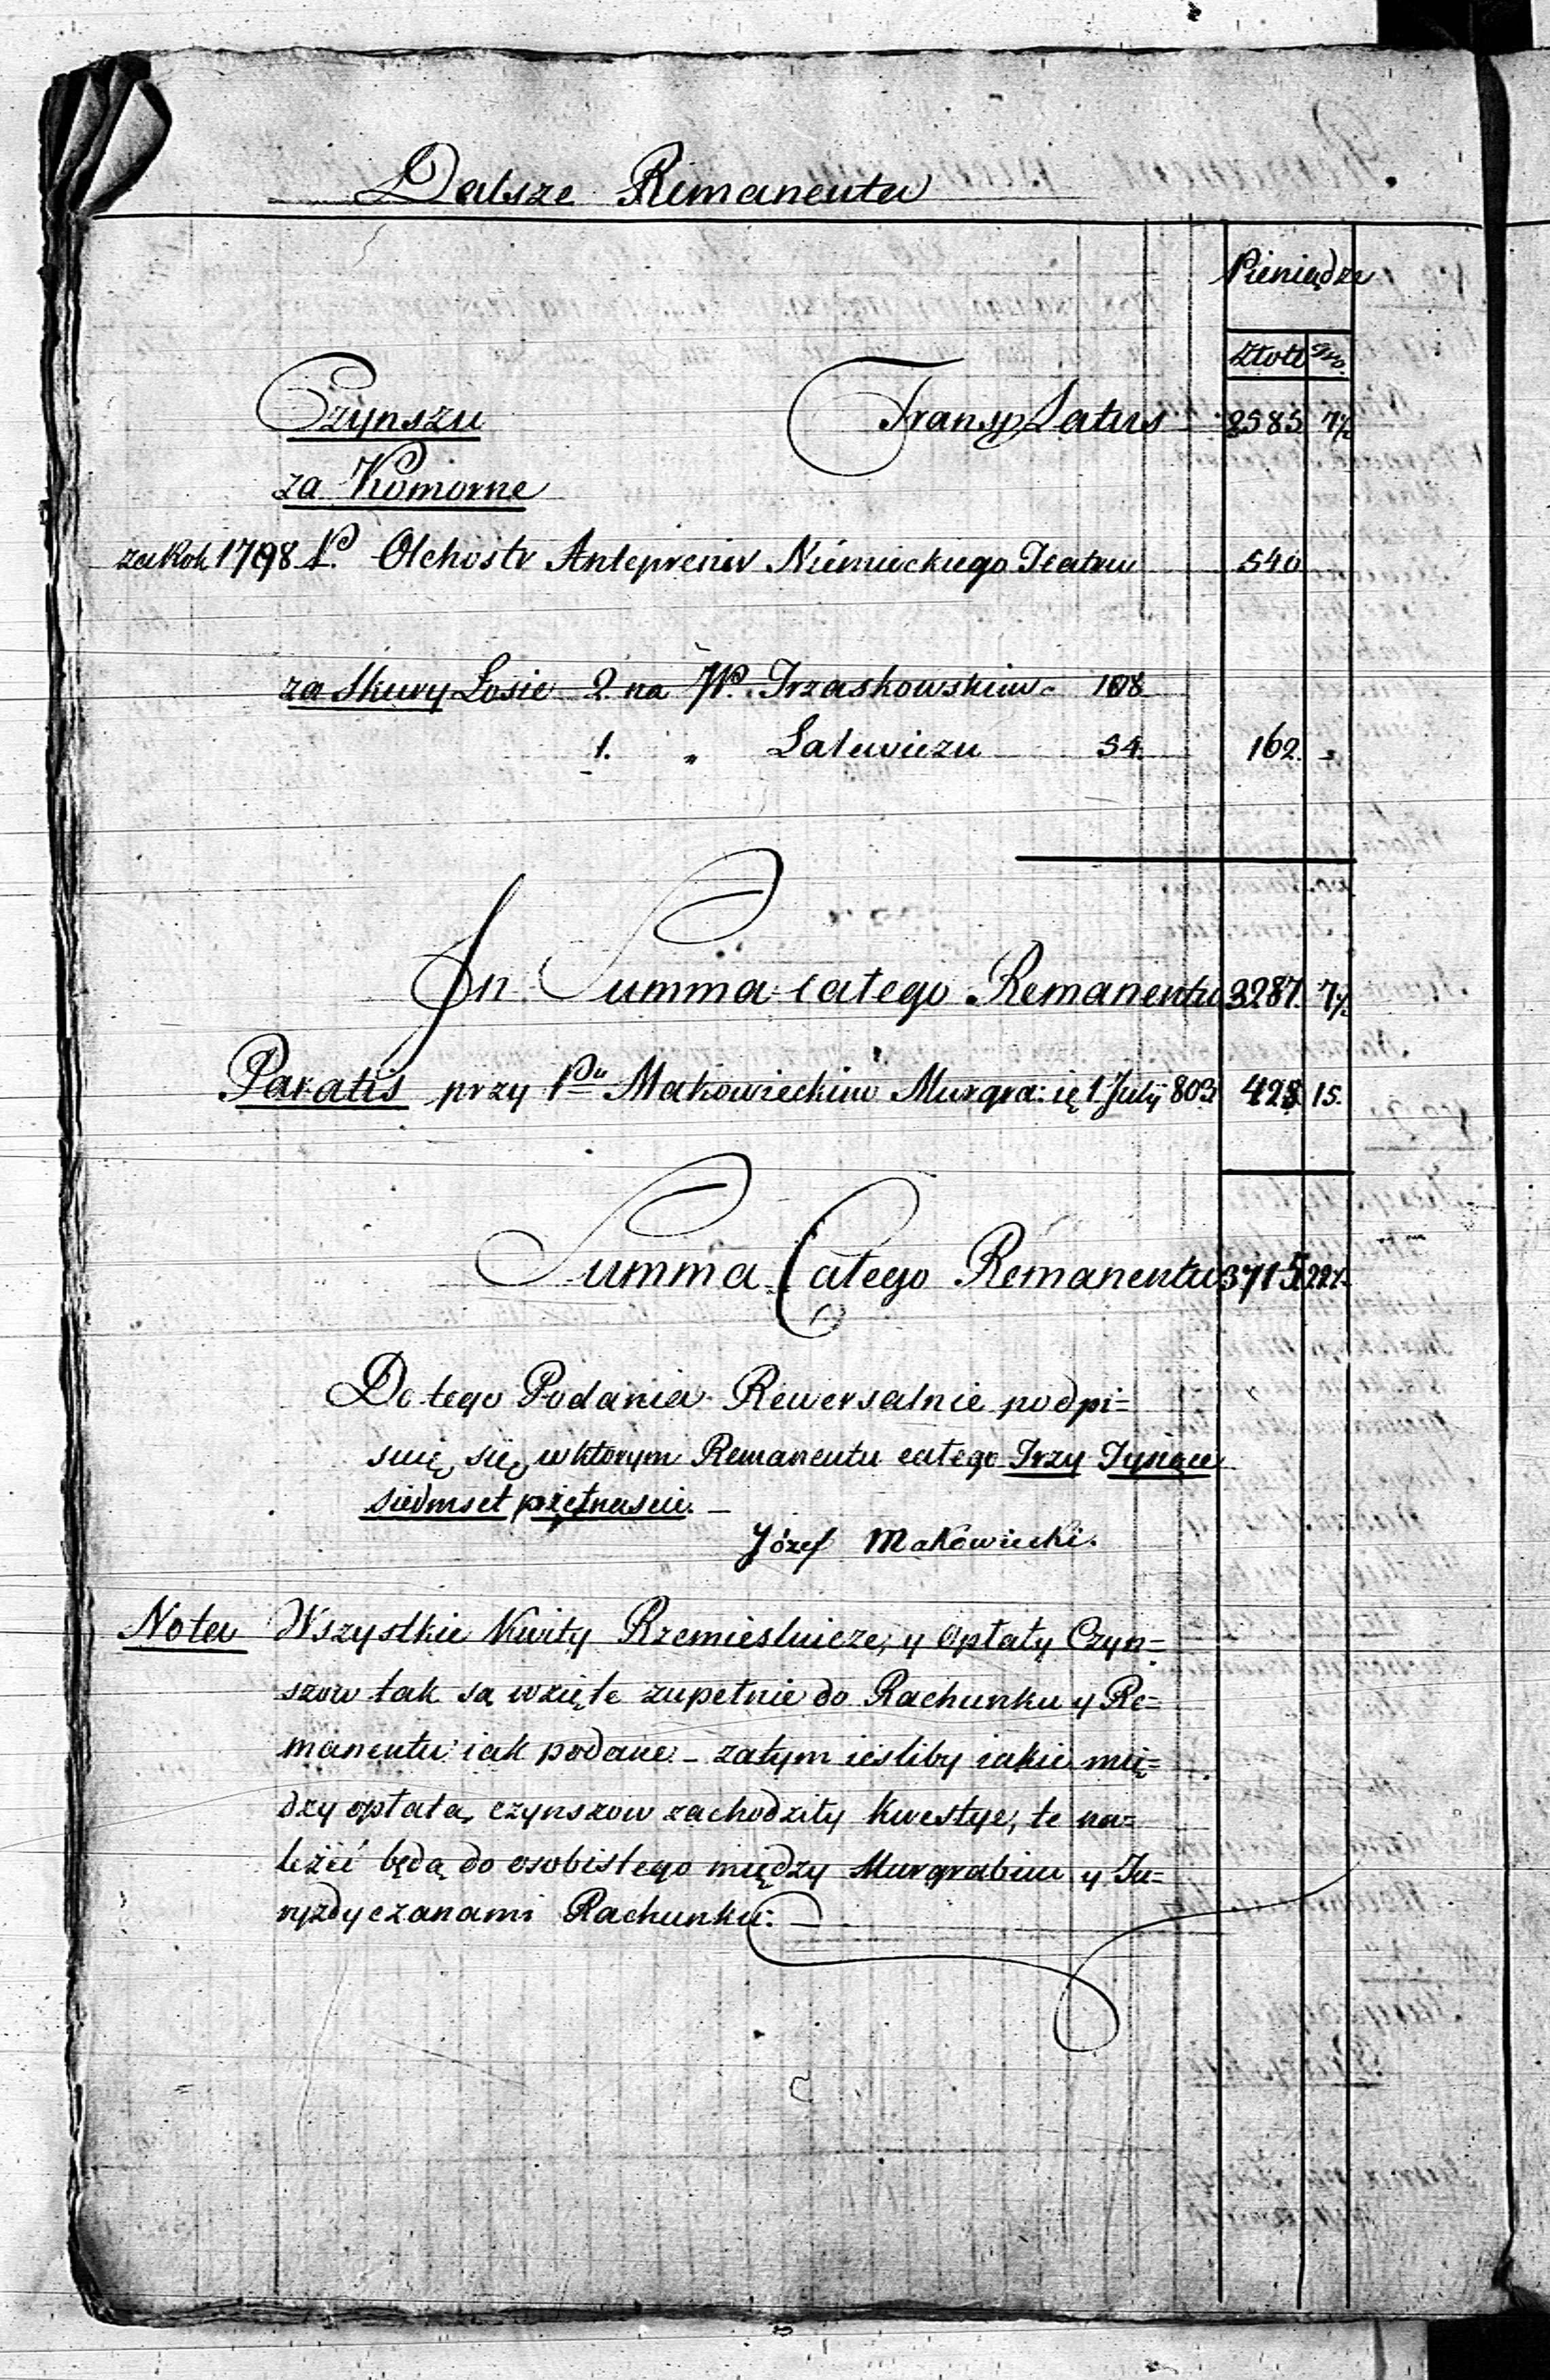 Dalsze Remanenta
Pieniądze
Złote Gro.
Czynszu Transp Latus 2585 7½
za Komorne
za Rok 1798 P. Olchostr Anteprener Niemieckiego Teatru 540
za Skury Łosie 2 na JP. Trzaskowskim 108
1. " Latewiczu 54. 162. "
In Summa całego Remanentu 3287. 7½
Paratis przy Pu Makowieckim Murgra: ię 1 July 803 428 15.
Summa Całego Remanentu 3715 22½
Do tego Podania Rewersalnie podpi=
suię się, w ktorym Remanentu całego Trzy Tysiące
siedmset piętnascie. —
Józef Makowiecki.
Nota Wszystkie Kwity Rzemieslnicze, y Opłaty Czyn=
szow tak są wzięte zupełnie do Rachunku y Re=
manentu iak podane – zatym iesliby iakie mię=
dzy opłatą czynszow zachodziły kwestye, te na=
leżeć będą do osobistego między Murgrabim y Ju=
ryzdyczanami Rachunku: